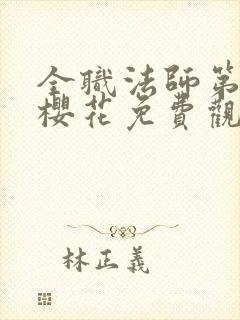 全職法師第
櫻花免費觀
林正義